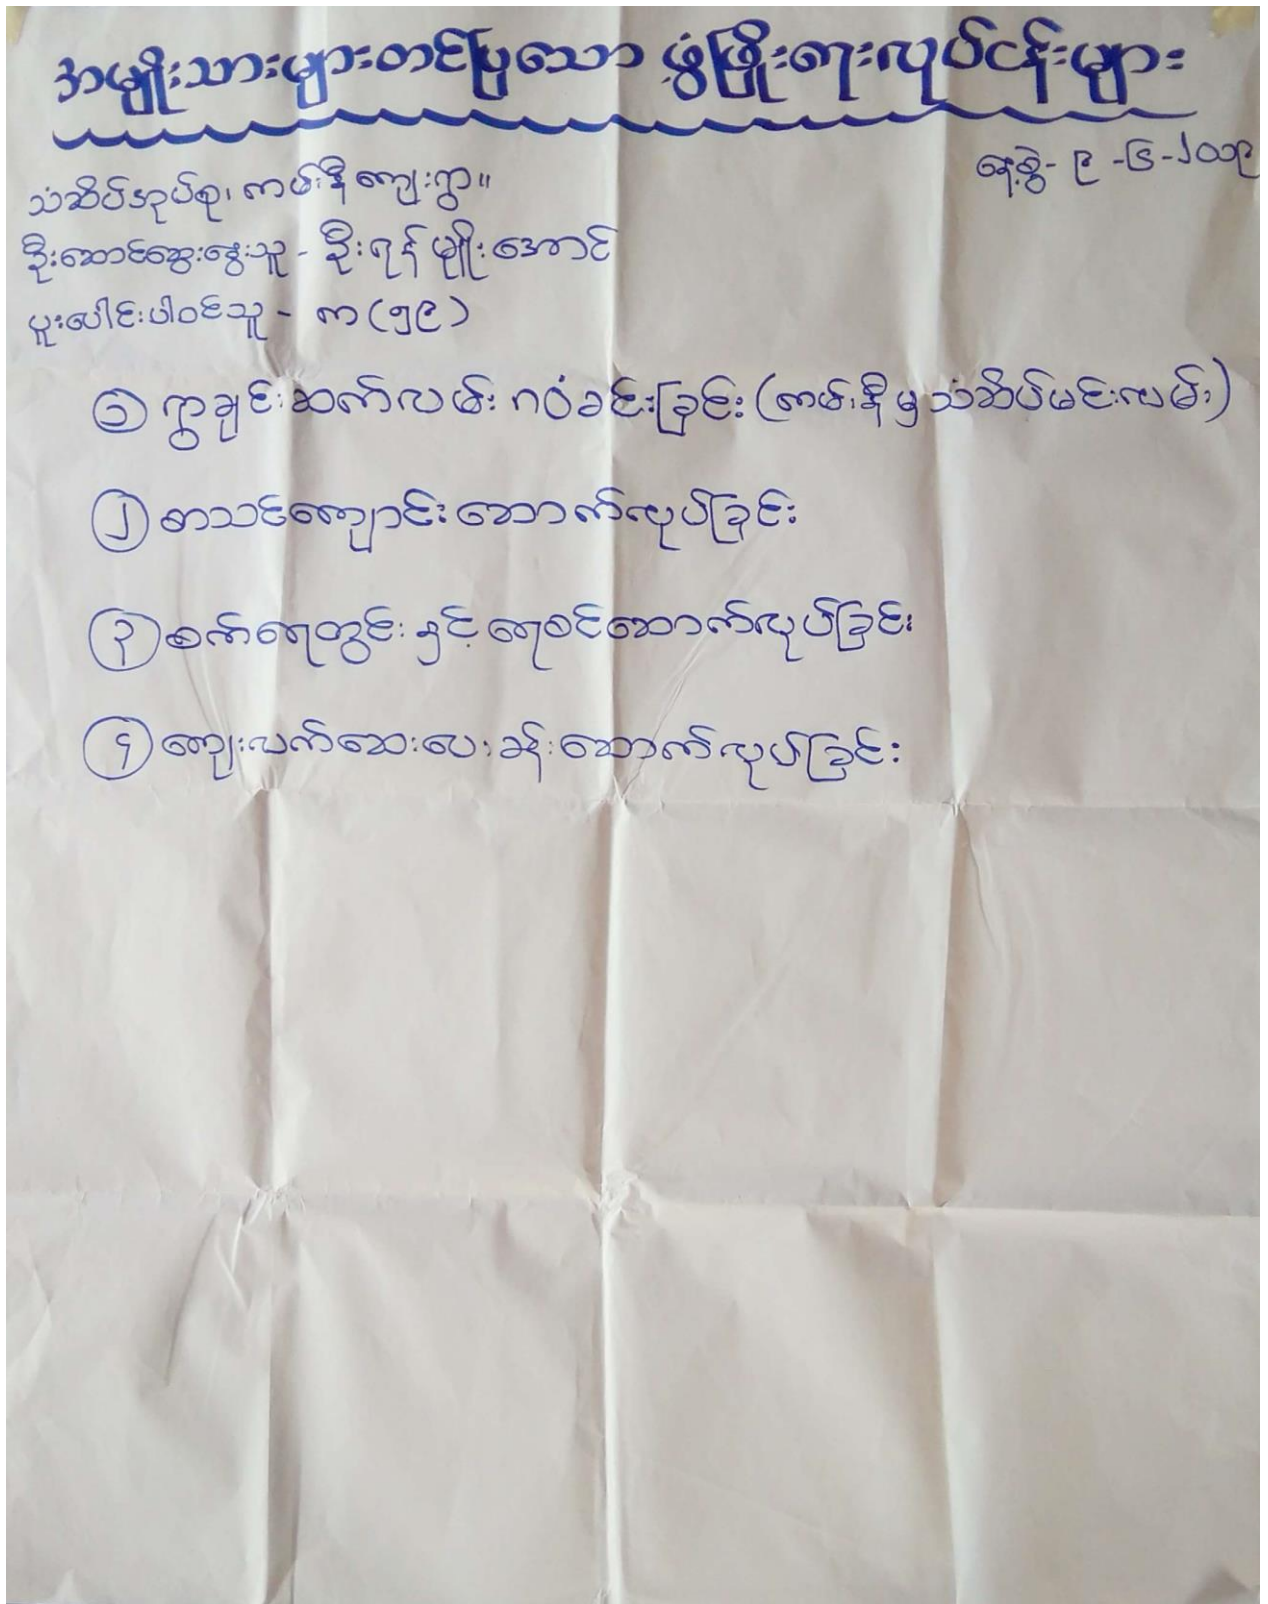 အမျိုးသားများတင်ပြသော ဖွံ့ဖြိုးရေးလုပ်ငန်းများ
နေ့စွဲ - ၉ - ၆ - ၂၀၁၉
သံဆိပ်အုပ်စု၊ ကမ်းနီကျေးရွာ။
ဦးဆောင်ဆွေးနွေးသူ - ဦးရန်မျိုးအောင်
ပူးပေါင်းပါဝင်သူ - ကျား (၅၉)
၁ ရွာချင်းဆက်လမ်း ဂဝံခင်းခြင်း (ကမ်းနီမှ သံဆိပ်မင်းလမ်း)
၂ စာသင်ကျောင်းဆောက်လုပ်ခြင်း
၃ စက်ရေတွင်း နှင့် ရေစင်ဆောက်လုပ်ခြင်း
၄ ကျေးလက်ဆေးပေးခန်းဆောက်လုပ်ခြင်း